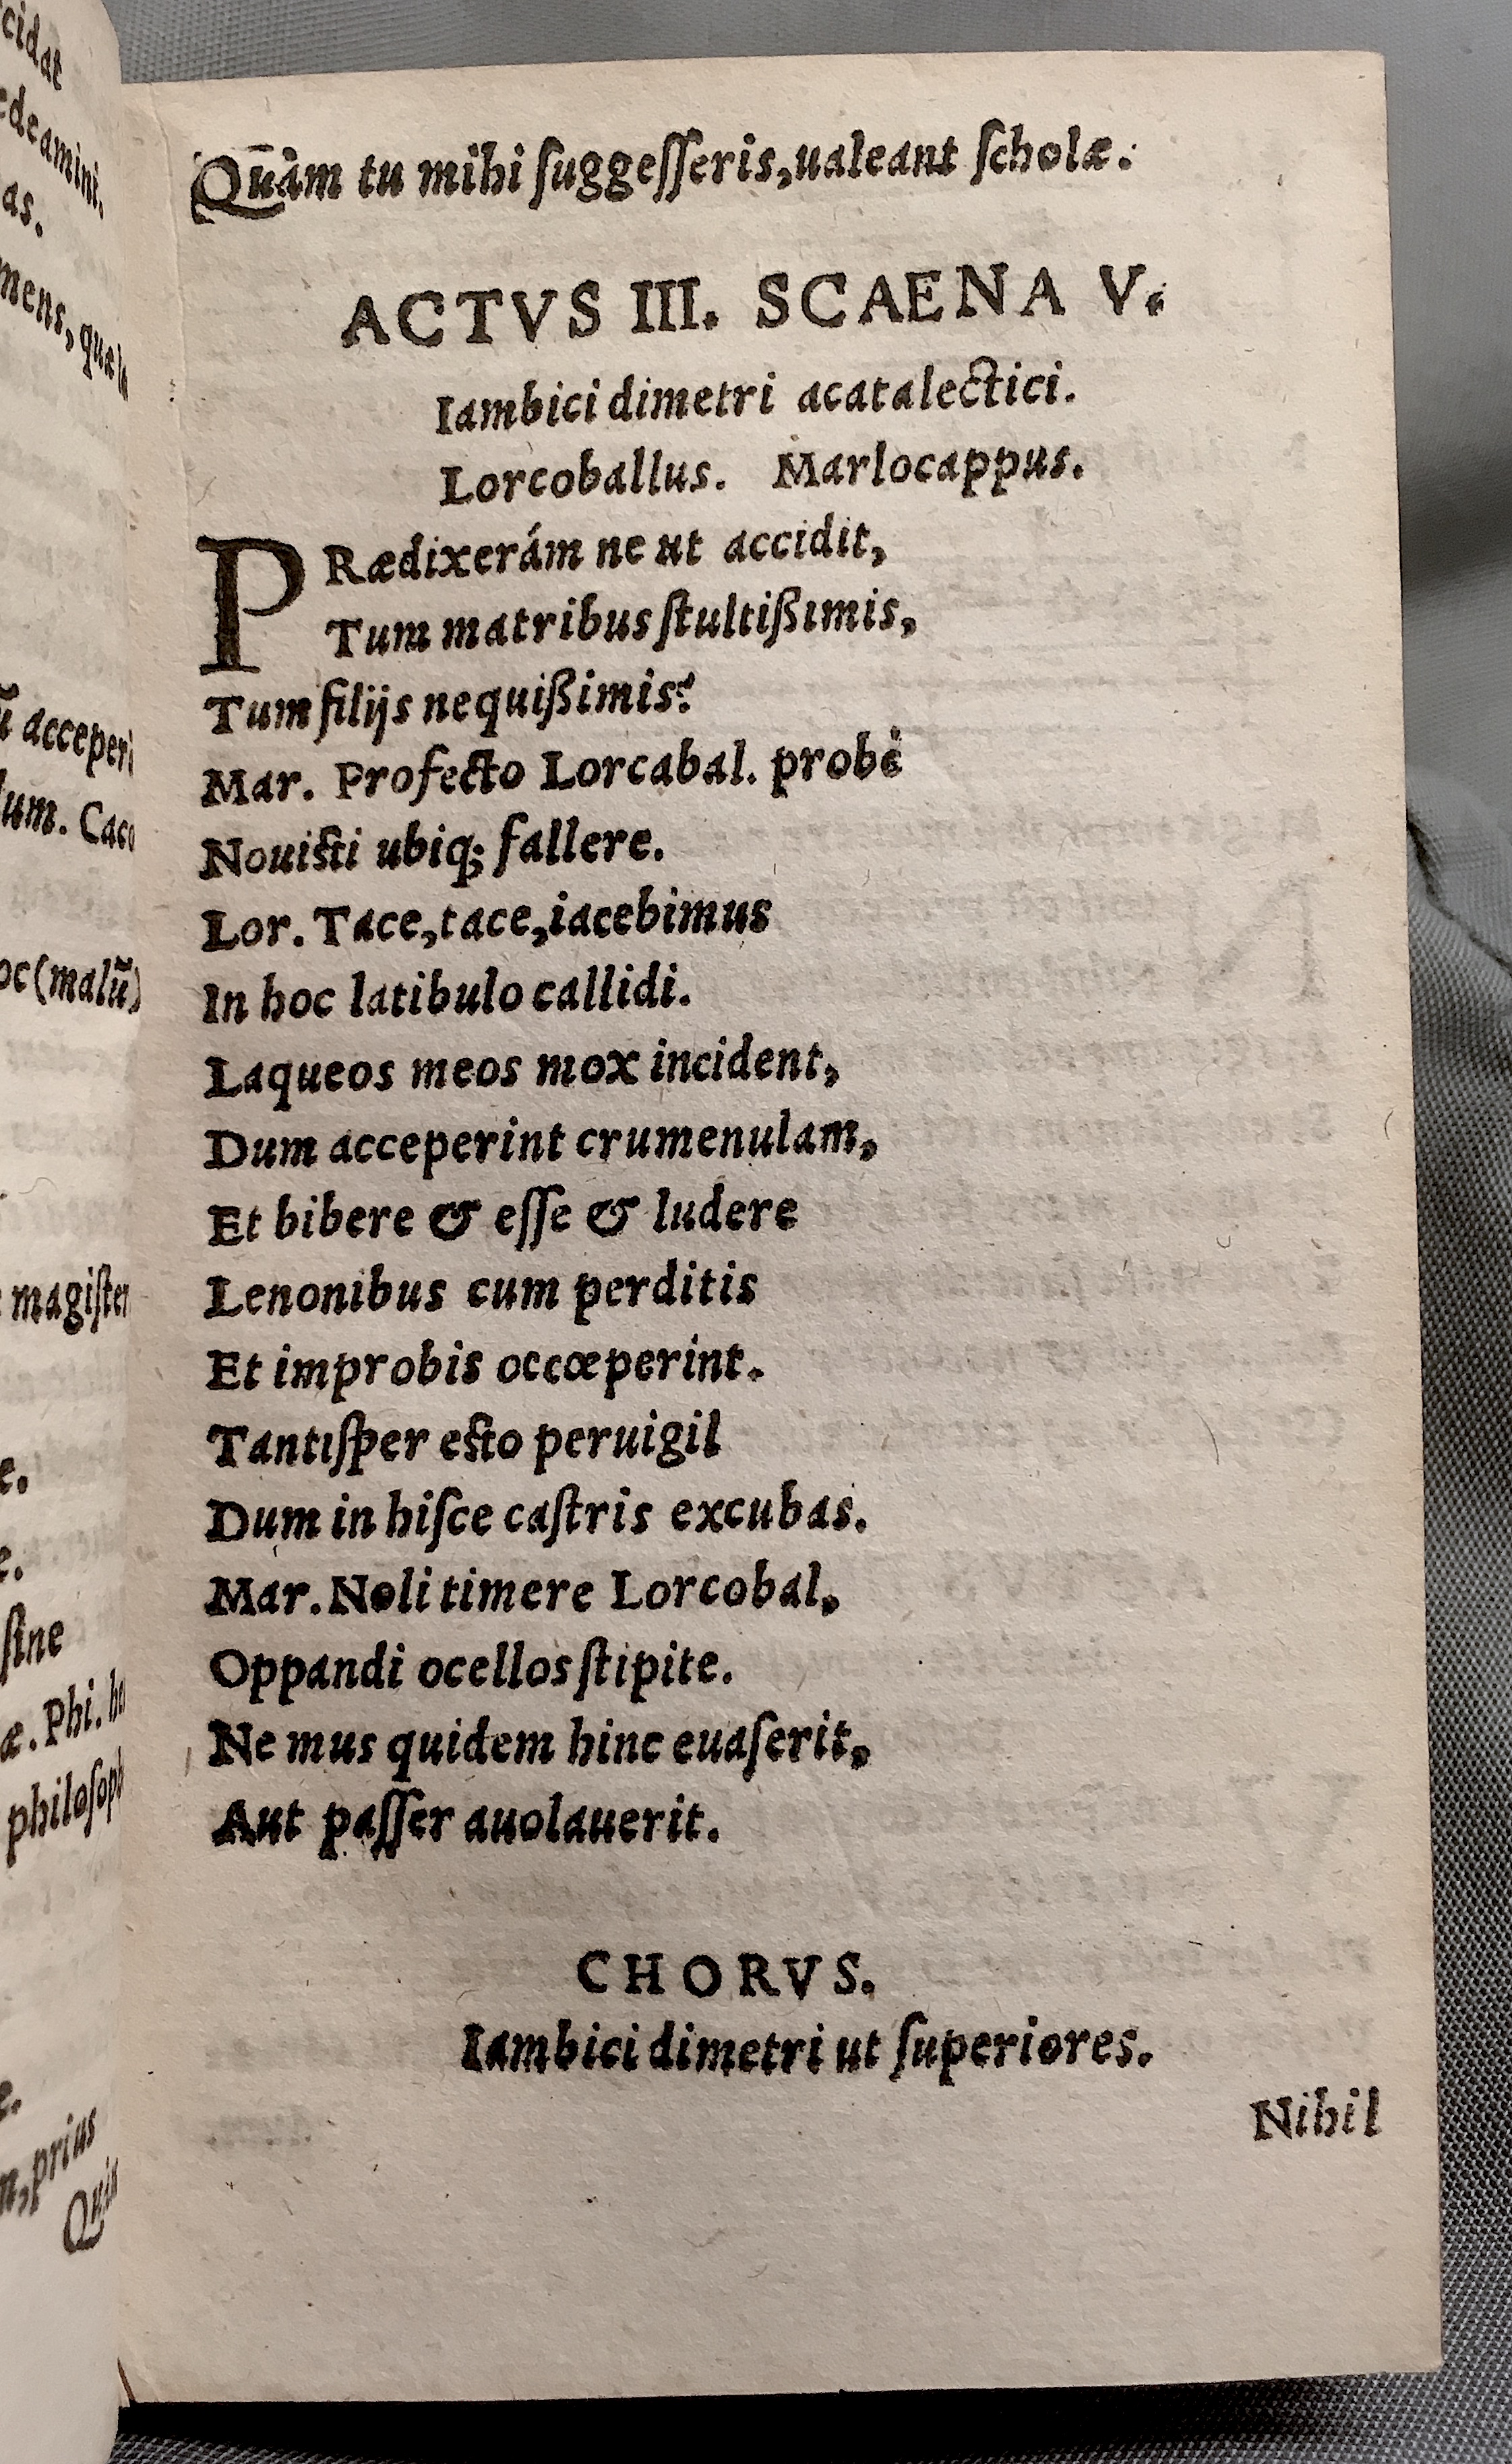 cidat
edeamini.
as.
mens, quæ
acceperi
lum. Caco
oc (malũ)
magister
e.
e.
sine
æ. Phi. ho
philosoph
e.
n, prius
Quin
Quàm tu mihi suggesseris, ualeant scholæ.
ACTVS III. SCAENA V.
Iambici dimetri acatalectici.
Lorcoballus. Marlocappus.
PRædixerám ne ut accidit,
Tum matribus stultißimis,
Tum filijs nequißimis?
Mar. Profecto Lorcabal. probè
Nouisti ubiq; fallere.
Lor. Tace, tace, iacebimus
In hoc latibulo callidi.
Laqueos meos mox incident,
Dum acceperint crumenulam,
Et bibere & esse & ludere
Lenonibus cum perditis
Et improbis occœperint.
Tantisper esto peruigil
Dum in hisce castris excubas.
Mar. Noli timere Lorcobal,
Oppandi ocellos stipite.
Ne mus quidem hinc euaserit,
Aut passer auolauerit.
CHORVS.
Iambici dimetri ut superiores.
Nihil